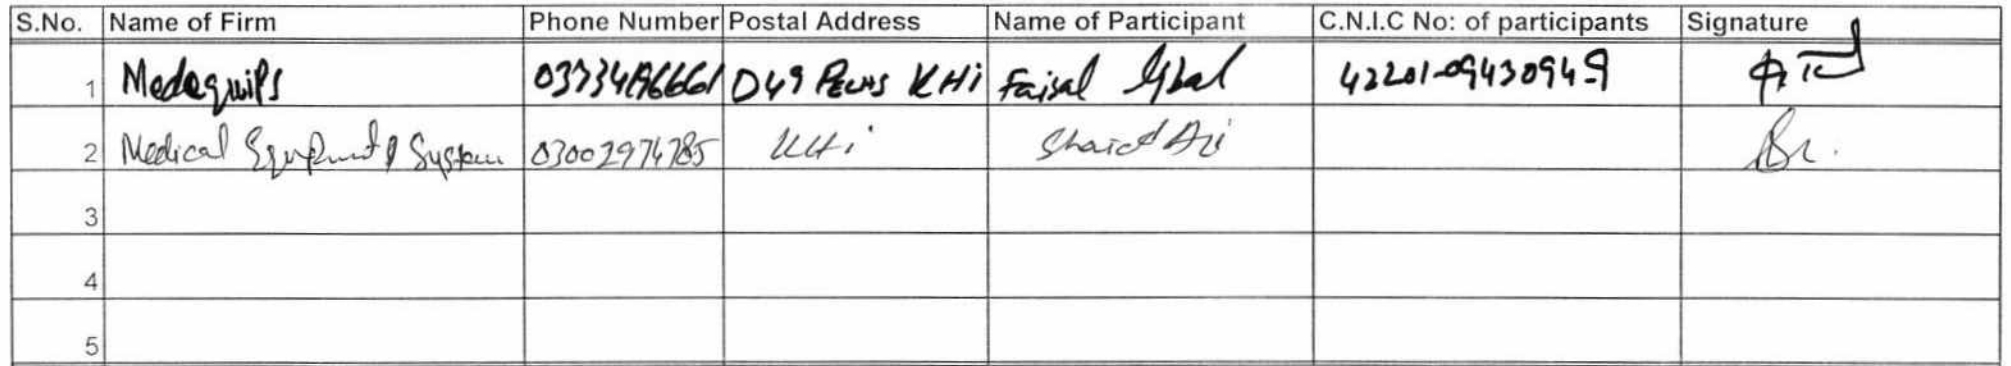 S.No. Name of Firm Phone Number Postal Address Name of Participant C.N.I.C No: of participants Signature
1 Medequips D49 Pechs KHi Faisal Iqbal 42201-0943094-9
2 Medical Equipment & System 03002974785 KHi Ali
3
4
5